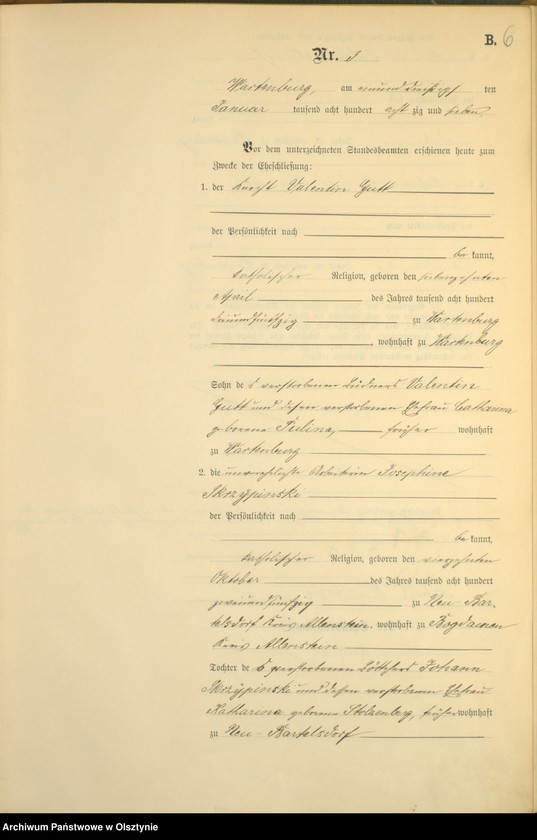 B. 6
Nr. 3
Wartenburg, am neunundzwanzigsten
Januar tausend acht hundert achtzig und sieben.
Vor dem unterzeichneten Standesbeamten erschienen heute zum
Zwecke der Eheschließung:
1. der Knecht Valentin Gutt
der Persönlichkeit nach
bekannt,
katholischer Religion, geboren den siebenzehnten
April des Jahres tausend acht hundert
zu Wartenburg
, wohnhaft zu Wartenburg
Sohn des verstorbenen Büdners Valentin
Gutt und dessen verstorbenen Ehefrau Catharina
geborene Pulina, früher wohnhaft
zu Wartenburg
2. die unverehelichte Arbeiterin Josephine
Skrzypinski
der Persönlichkeit nach
bekannt,
katholischer Religion, geboren den vierzehnten
Oktober des Jahres tausend acht hundert
zweiundfünfzig zu Neu-Bar-
telsdorf Kreis Allenstein, wohnhaft zu Bogdainen
Kreis Allenstein
Tochter des verstorbenen Johann
Skrzypinski und dessen verstorbenen Ehefrau
Katharina geborene Stolzenberg, früher wohnhaft
zu Neu-Bartelsdorf
Archiwum Państwowe w Olsztynie